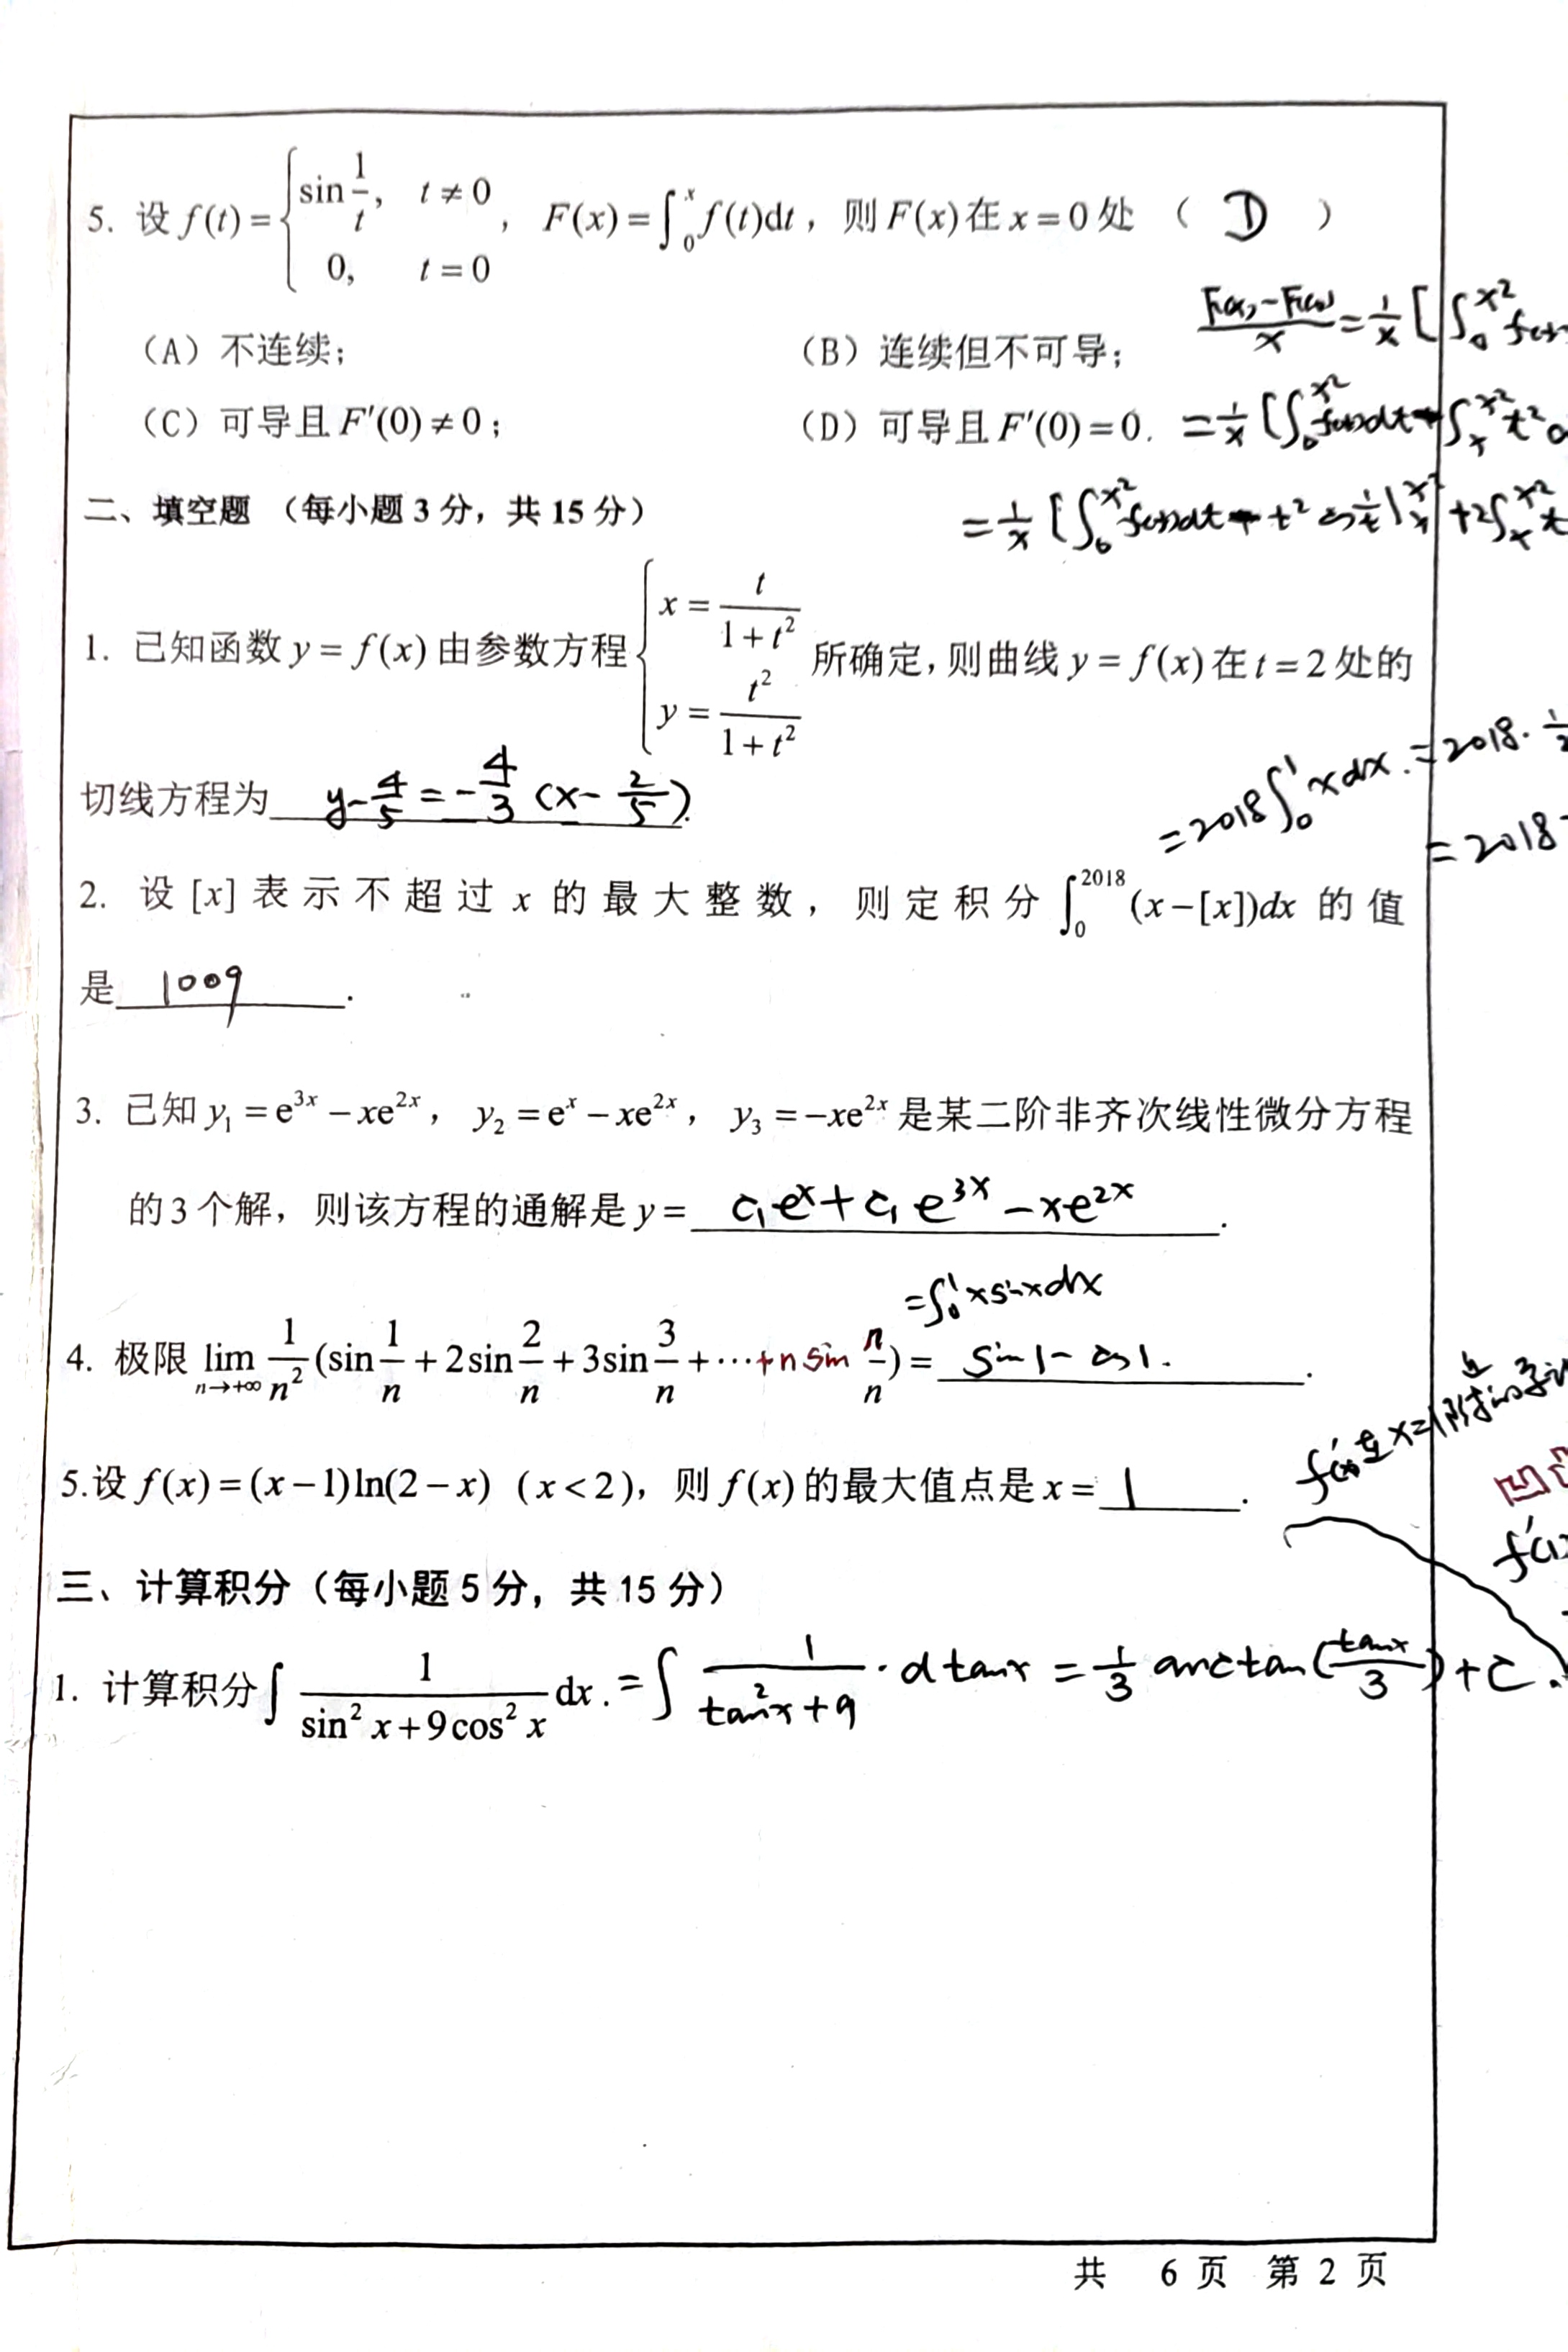 5. 设 f(t) = { sin 1/t, t ≠ 0 ; 0, t = 0 , F(x) = ∫₀ˣ f(t)dt, 则 F(x) 在 x = 0 处 ( D )
(F(x) - F(0))/x = 1/x [ ∫₀^(x²)
(A) 不连续; (B) 连续但不可导;
(C) 可导且 F′(0) ≠ 0; (D) 可导且 F′(0) = 0.
= 1/x [ ∫₀^(x²) f(t)dt + ∫ₓ^(x²) t²
二、填空题 (每小题 3 分, 共 15 分)
= 1/x [ ∫₀^(x²) f(t)dt - t² cos 1/t |ₓ^(x²) + 2∫ₓ^(x²) t
1. 已知函数 y = f(x) 由参数方程 { x = t/(1+t²) ; y = t²/(1+t²) 所确定, 则曲线 y = f(x) 在 t = 2 处的
切线方程为 y - 4/5 = -4/3 (x - 2/5).
= 2018 ∫₀¹ x dx. = 2018 ·
= 2018
2. 设 [x] 表示不超过 x 的最大整数, 则定积分 ∫₀²⁰¹⁸ (x - [x])dx 的值
是 1009 .
3. 已知 y₁ = e³ˣ - xe²ˣ, y₂ = eˣ - xe²ˣ, y₃ = -xe²ˣ 是某二阶非齐次线性微分方程
的 3 个解, 则该方程的通解是 y = C₁eˣ + C₁e³ˣ - xe²ˣ .
= ∫₀¹ x sinx dx
4. 极限 lim n→+∞ 1/n² (sin 1/n + 2sin 2/n + 3sin 3/n + ⋯ + n sin n/n) = sin1 - cos1. .
5.设 f(x) = (x-1)ln(2-x) (x < 2), 则 f(x) 的最大值点是 x = 1 .
三、计算积分 (每小题 5 分, 共 15 分)
1. 计算积分 ∫ 1/(sin² x + 9cos² x) dx. = ∫ 1/(tan²x + 9) · d tanx = 1/3 arctan(tanx/3) + C.
共 6 页 第 2 页